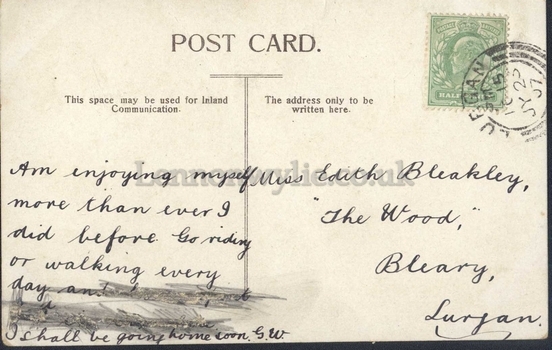 POST CARD.
This space may be used for Inland
Communication.
The address only to be
written here.
HALF
LURGAN
JY 22
07
Lennonwylie.co.uk
Am enjoying myself
more than ever I
did before. Go riding
or walking every
day an
I shall be going home soon. G.W.
Miss Edith Bleakley,
"The Wood,"
Bleary,
Lurgan.